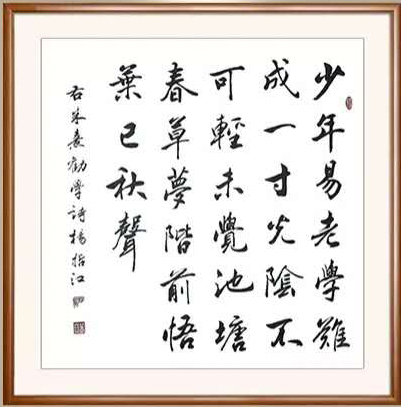 少年易老學難
成一寸光陰不
可輕未覺池塘
春草夢階前悟
葉已秋聲
右朱熹勸學詩楊指江